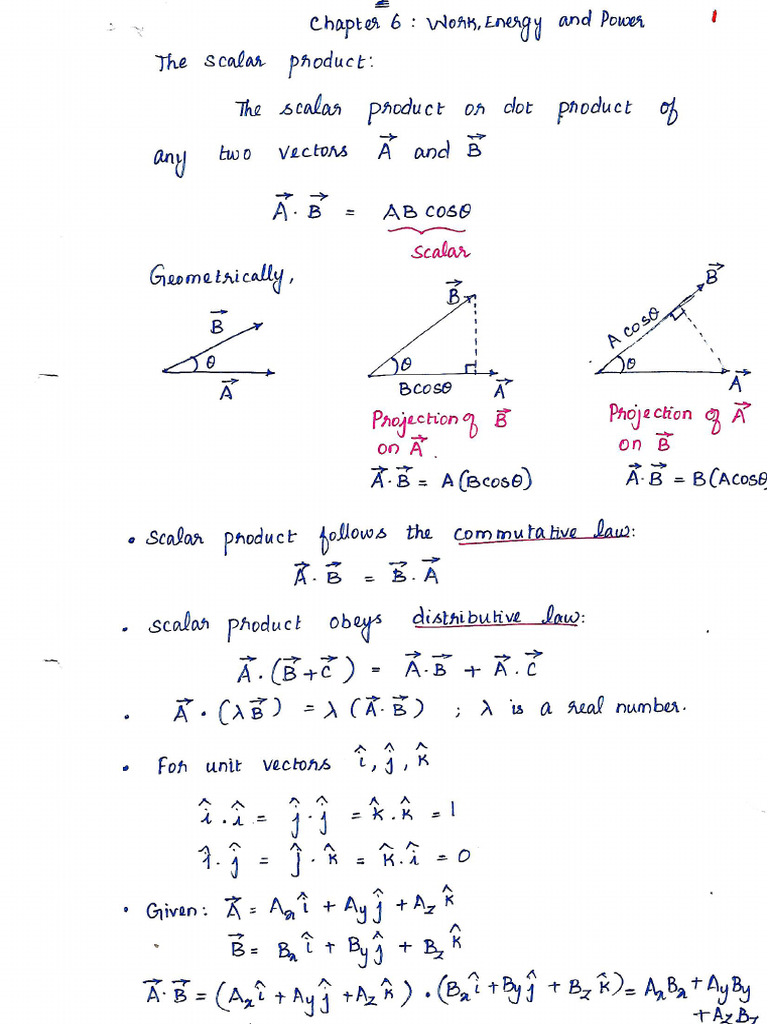 Chapter 6 : Work, Energy and Power
1
The scalar product:
The scalar product or dot product of
any two vectors A⃗ and B⃗
A⃗ . B⃗ = AB cosθ
scalar
Geometrically,
B⃗
θ
A⃗
B⃗
θ
Bcosθ
A⃗
Projection of B⃗
on A⃗.
A⃗.B⃗ = A(Bcosθ)
B⃗
A cosθ
θ
A⃗
Projection of A⃗
on B⃗
A⃗.B⃗ = B(Acosθ)
• Scalar product follows the commutative law:
A⃗ . B⃗ = B⃗ . A⃗
• scalar product obeys distributive law:
A⃗ . (B⃗ + C⃗) = A⃗.B⃗ + A⃗.C⃗
• A⃗ . (λB⃗) = λ (A⃗.B⃗) ; λ is a real number.
• For unit vectors î, ĵ, k̂
î . î = ĵ . ĵ = k̂ . k̂ = 1
î . ĵ = ĵ . k̂ = k̂ . î = 0
• Given: A⃗ = Axî + Ayĵ + Azk̂
B⃗ = Bxî + Byĵ + Bzk̂
A⃗.B⃗ = (Axî + Ayĵ + Azk̂) . (Bxî + Byĵ + Bzk̂) = AxBx + AyBy
+ AzBz